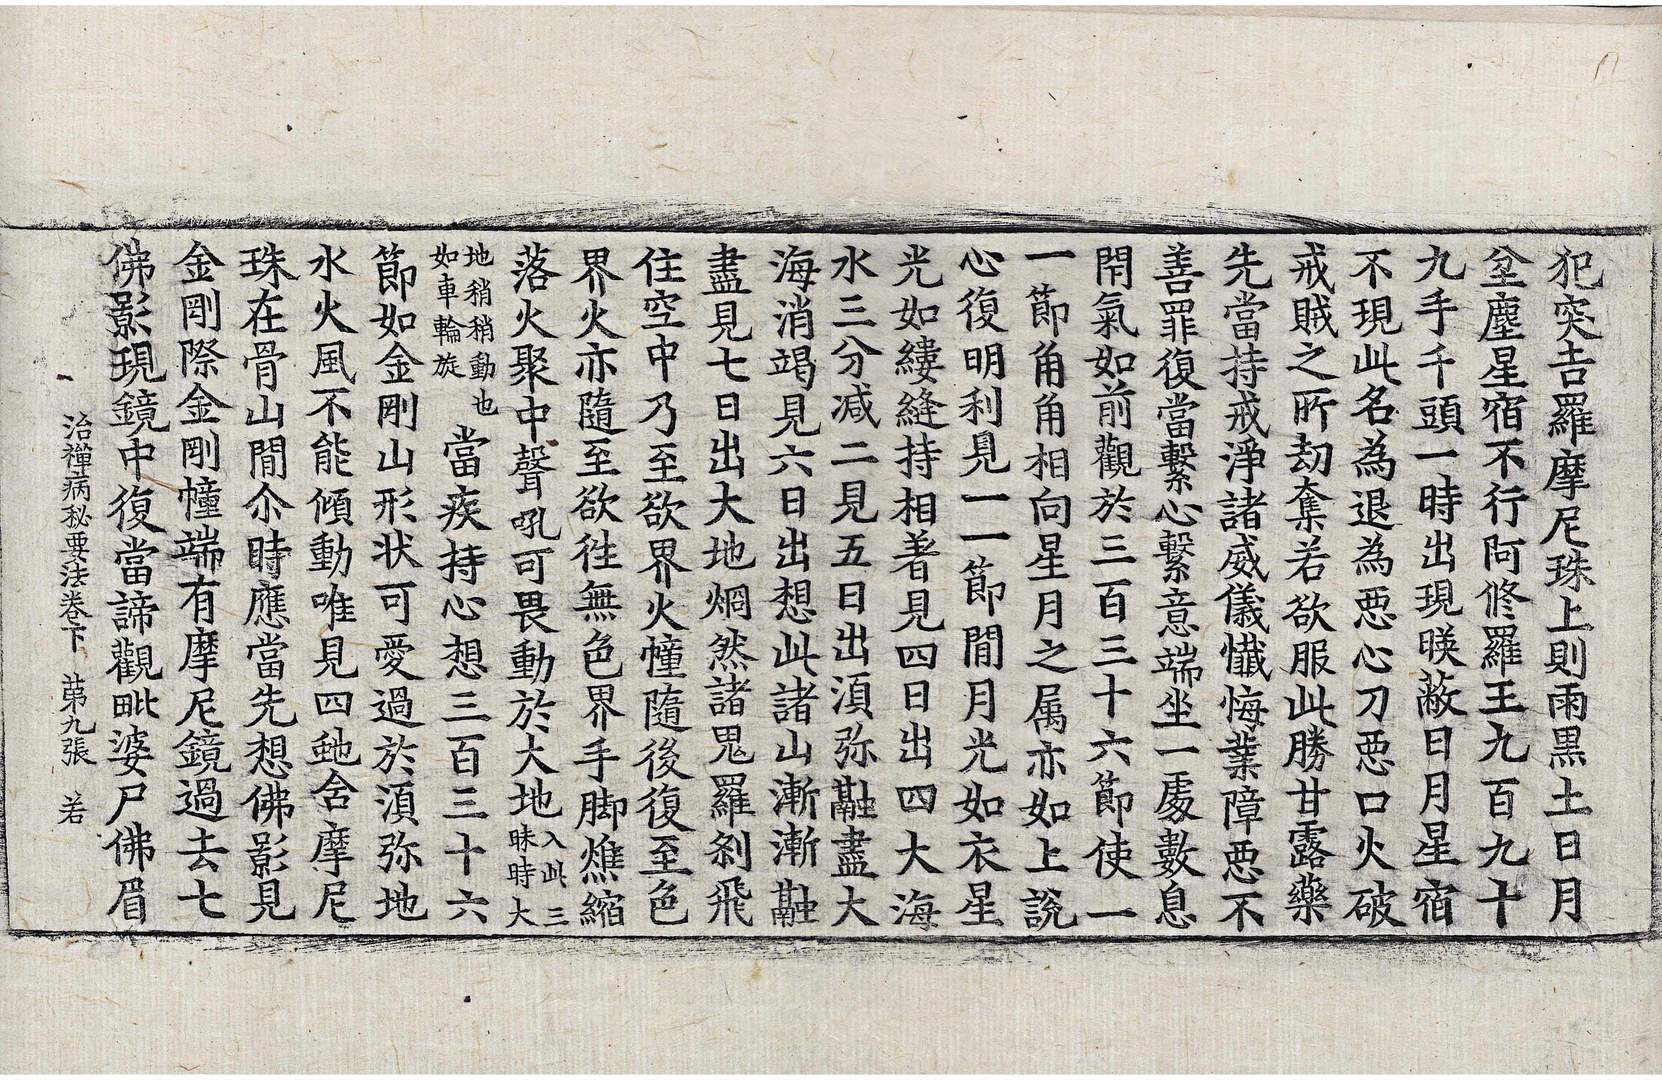 犯突吉羅摩尼珠上則雨黒土日月
坌塵星宿不行阿修羅王九百九十
九手千頭一時出現暎蔽日月星宿
不現此名為退為惡心刀惡口火破
戒賊之所劫奪若欲服此勝甘露藥
先當持戒淨諸威儀懺悔業障惡不
善罪復當繫心繫意端坐一處數息
閇氣如前觀於三百三十六節使一
一節角角相向星月之属亦如上說
心復明利見一一節間月光如衣星
光如縷縫持相著見四日出四大海
水三分减二見五日出湏弥融盡大
海消竭見六日出想此諸山漸漸融
盡見七日出大地烱然諸鬼羅刹飛
住空中乃至欲界火幢隨後復至色
界火亦隨至欲徃無色界手脚燋縮
落火聚中聲吼可畏動於大地入此三昧時大
地稍稍動也如車輪旋當疾持心想三百三十六
節如金剛山形状可愛過於湏弥地
水火風不能傾動唯見四虵含摩尼
珠在骨山間尒時應當先想佛影見
金剛際金剛幢端有摩尼鏡過去七
佛影現鏡中復當諦觀毗婆尸佛眉
治禪病秘要法卷下 苐九張 若